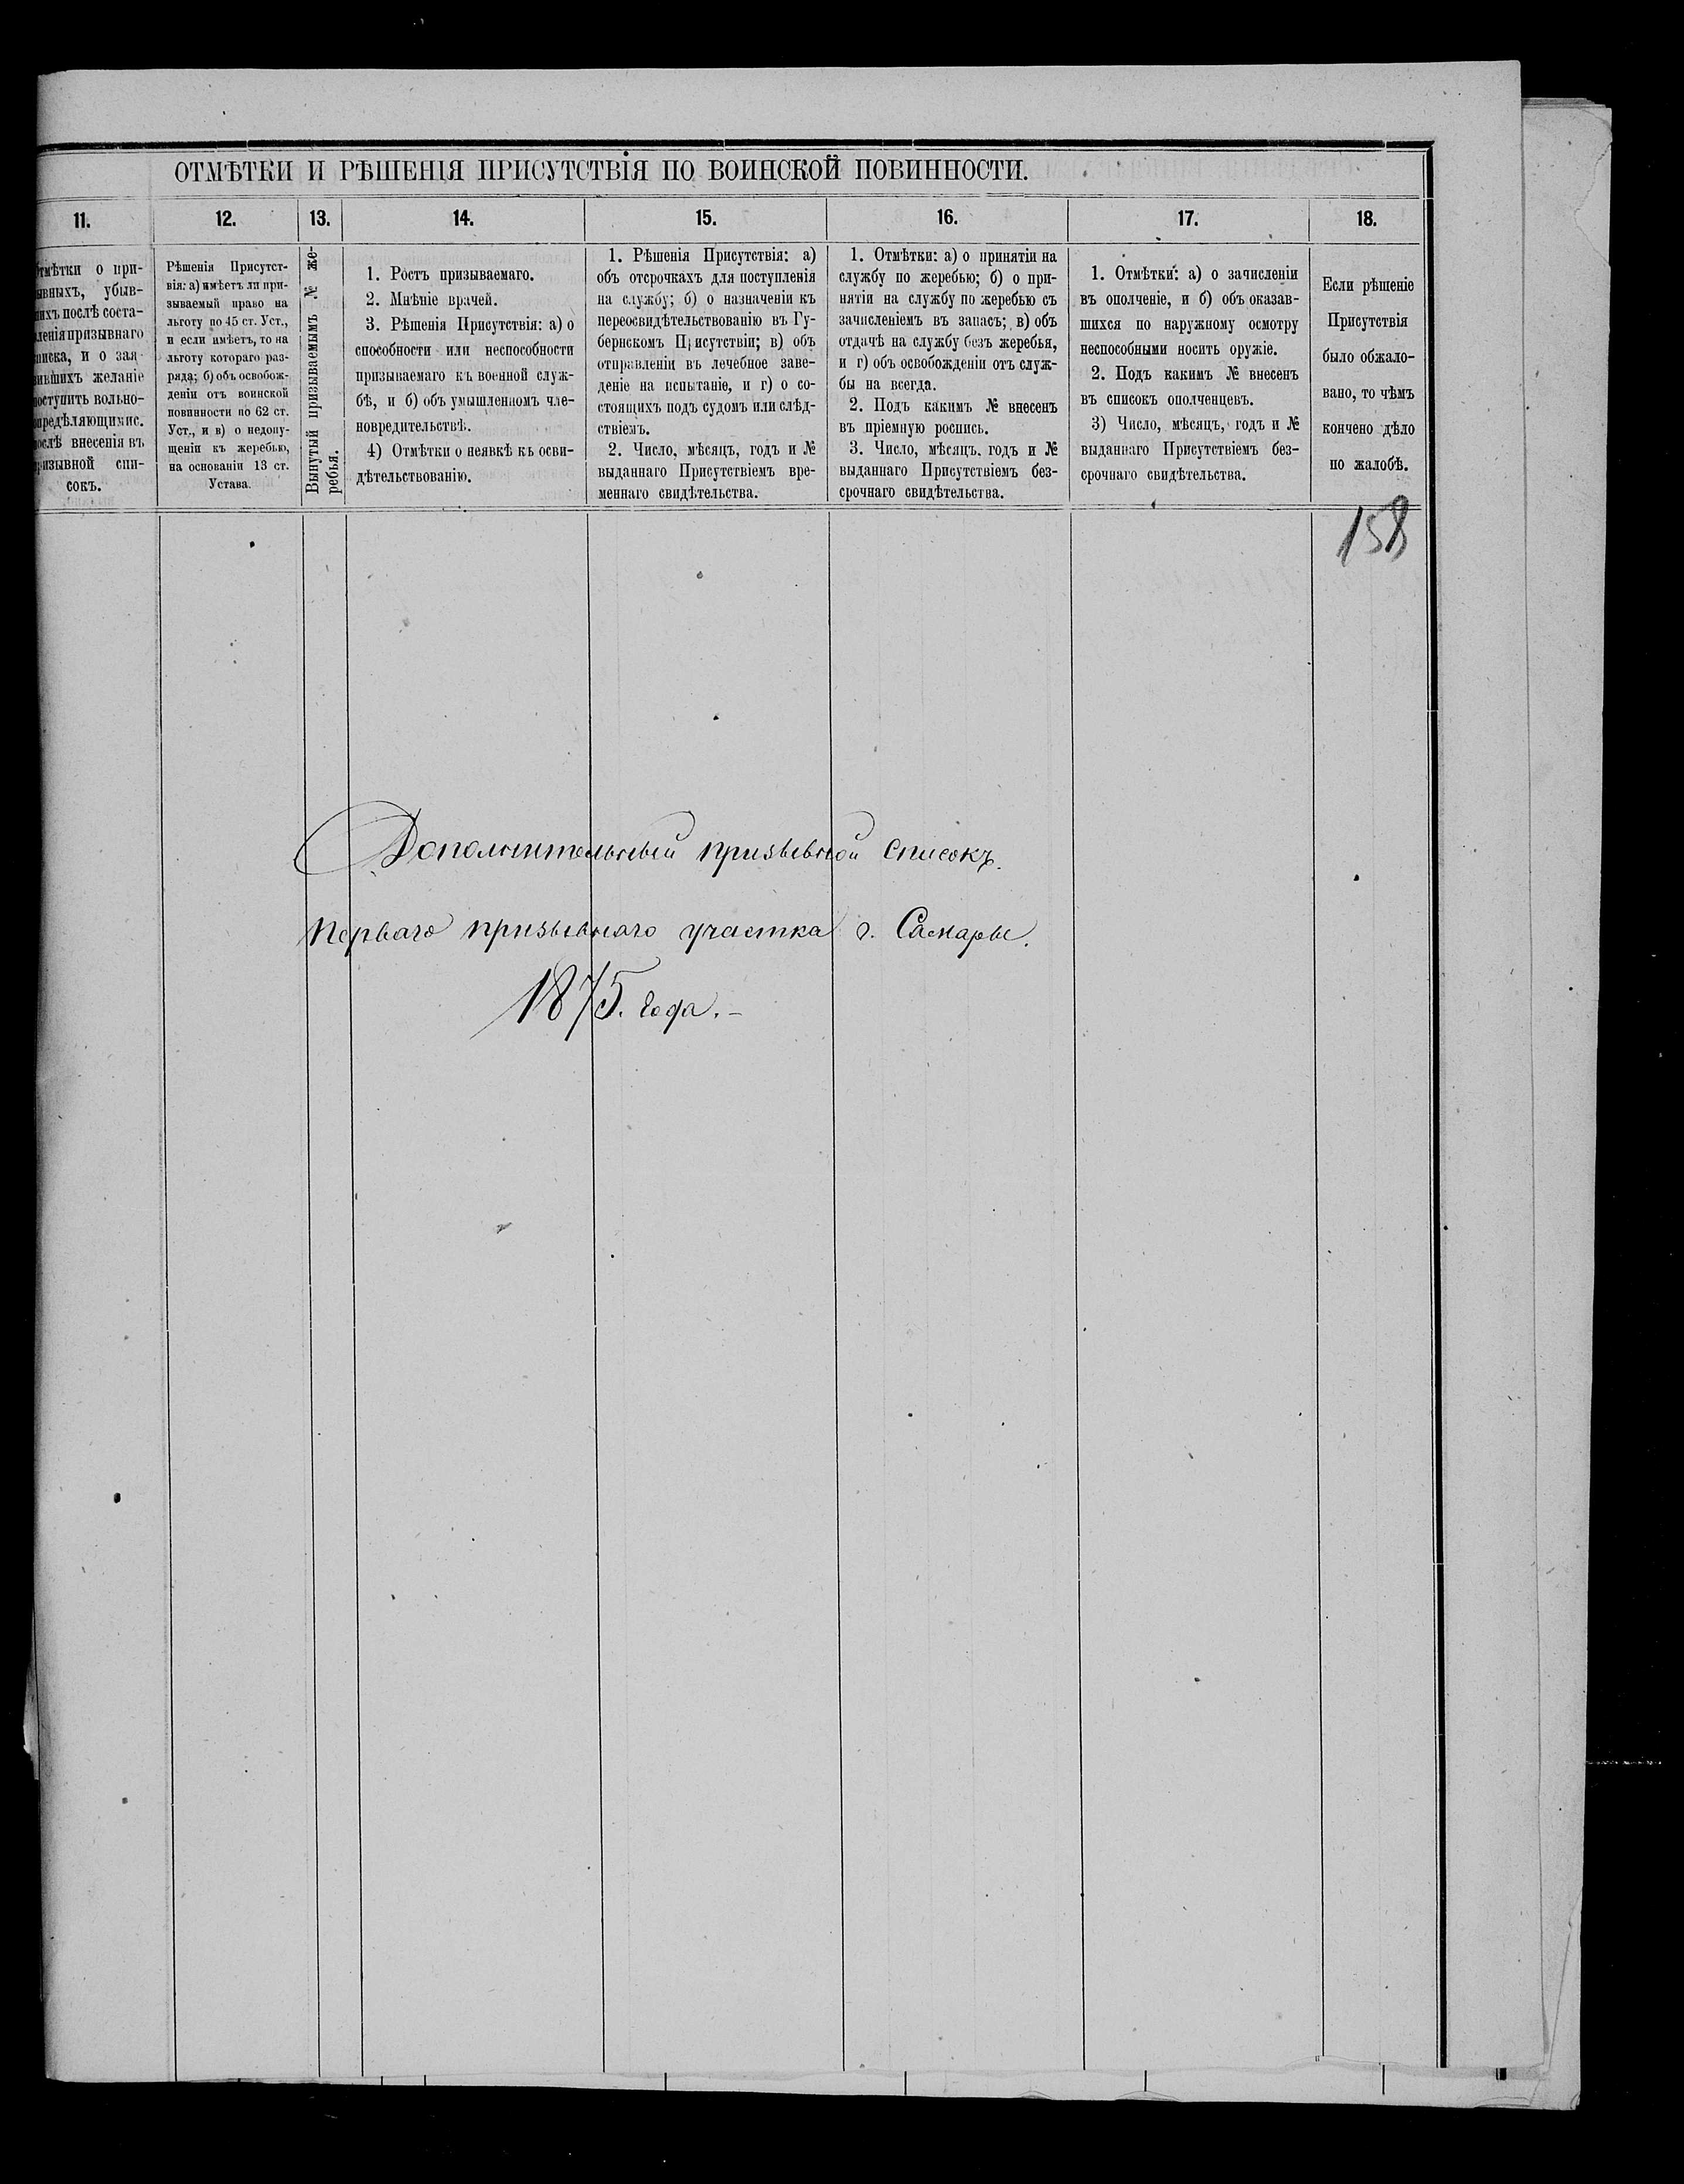 ОТМѢТКИ И РѢШЕНІЯ ПРИСУТСТВІЯ ПО ВОИНСКОЙ ПОВИННОСТИ.
11.
тмѣтки о при-
ывныхъ, убыв-
ихъ послѣ соста-
ленія призывнаго
писка, и о зая-
ившихъ желаніе
оступить вольно-
предѣляющимис.
ослѣ внесенія въ
ризывной спи-
сокъ.
12.
Рѣшенія Присутст-
вія: а) имѣетъ ли при-
зываемый право на
льготу по 45 ст. Уст.,
и если имѣетъ, то на
льготу котораго раз-
ряда; б) объ освобож-
деніи отъ воинской
повинности по 62 ст.
Уст., и в) о недопу-
щеніи къ жеребью,
на основаніи 13 ст.
Устава.
13.
Вынутый призываемымъ № же-
ребья.
14.
1. Ростъ призываемаго.
2. Мнѣніе врачей.
3. Рѣшенія Присутствія: а) о
способности или неспособности
призываемаго къ военной служ-
бѣ, и б) объ умышленномъ чле-
новредительствѣ.
4) Отмѣтки о неявкѣ къ осви-
дѣтельствованію.
15.
1. Рѣшенія Присутствія: а)
объ отсрочкахъ для поступленія
на службу; б) о назначеніи къ
переосвидѣтельствованію въ Гу-
бернскомъ Присутствіи; в) объ
отправленіи въ лечебное заве-
деніе на испытаніе, и г) о со-
стоящихъ подъ судомъ или слѣд-
ствіемъ.
2. Число, мѣсяцъ, годъ и №
выданнаго Присутствіемъ вре-
меннаго свидѣтельства.
16.
1. Отмѣтки: а) о принятіи на
службу по жеребью; б) о при-
нятіи на службу по жеребью съ
зачисленіемъ въ запасъ; в) объ
отдачѣ на службу безъ жеребья,
и г) объ освобожденіи отъ служ-
бы на всегда.
2. Подъ какимъ № внесенъ
въ пріемную роспись.
3. Число, мѣсяцъ, годъ и №
выданнаго Присутствіемъ без-
срочнаго свидѣтельства.
17.
1. Отмѣтки: а) о зачисленіи
въ ополченіе, и б) объ оказав-
шихся по наружному осмотру
неспособными носить оружіе.
2. Подъ какимъ № внесенъ
въ списокъ ополченцевъ.
3) Число, мѣсяцъ, годъ и №
выданнаго Присутствіемъ без-
срочнаго свидѣтельства.
18.
Если рѣшеніе
Присутствія
было обжало-
вано, то чѣмъ
кончено дѣло
по жалобѣ.
158
Дополнительный призывной списокъ.
Перваго призывнаго участка г. Самары.
1875. года. –